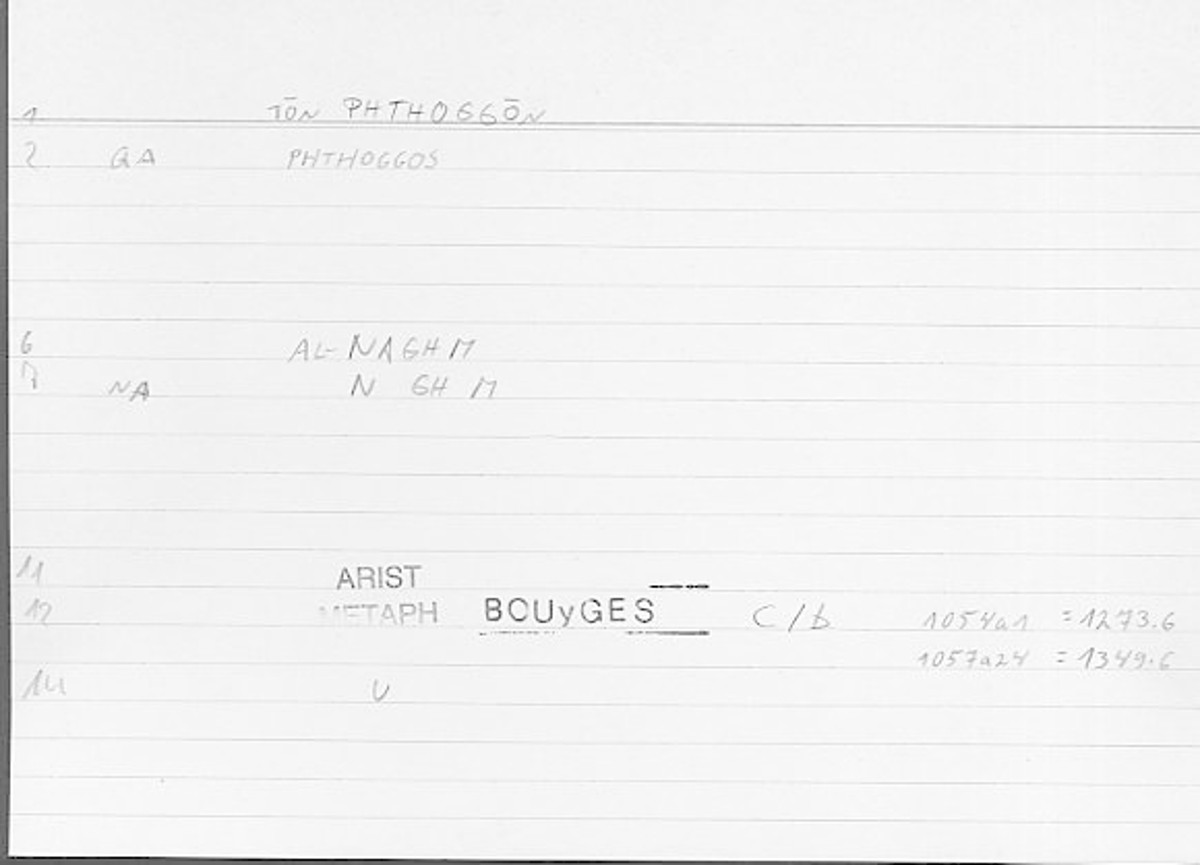 1 TŌN PHTHOGGŌN
2 QA PHTHOGGOS
6 AL-NAGHM
7 NA N GH M
11 ARIST
12 METAPH BOUyGES C/b 1054a1 = 1273.6
1057a24 = 1349.6
14 U